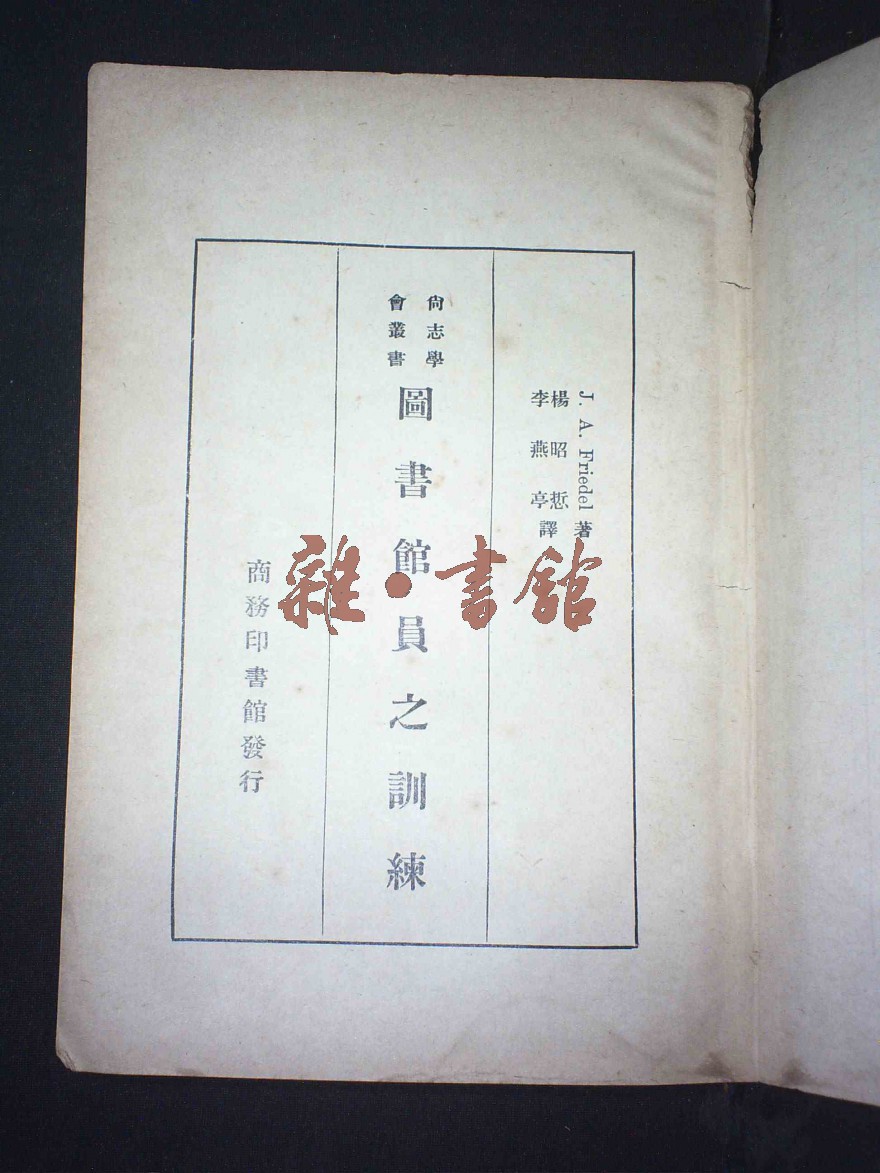 J. A. Friedel 著
楊昭悊
李燕亭
譯
尙志學
會叢書
圖書館員之訓練
商務印書館發行
雜·書館